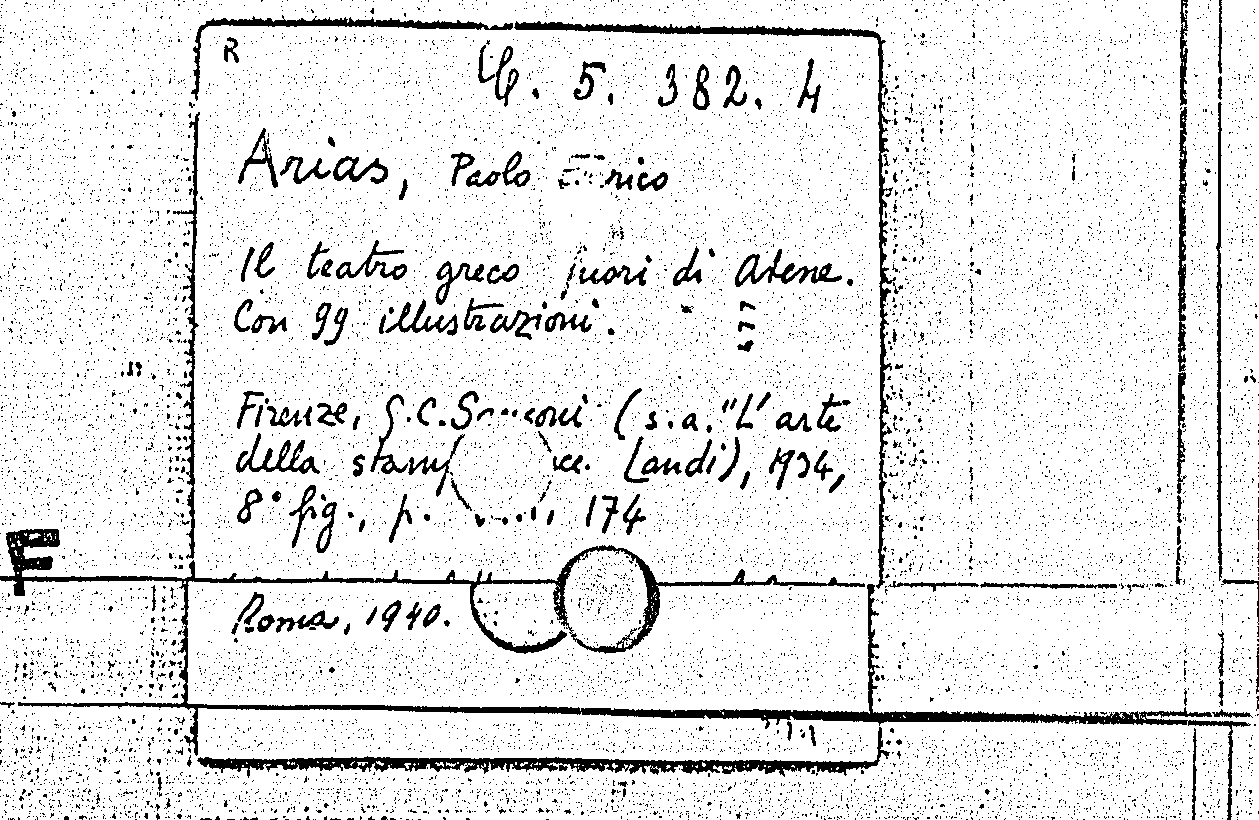 R
5. 382. 4
Arias, Paolo
Il teatro greco fuori di Atene.
Con 99 illustrazioni.
Firenze, G.C. (s.a. "L'arte
della Landi), 1934,
8° fig., p. 174
Roma, 1940.
F